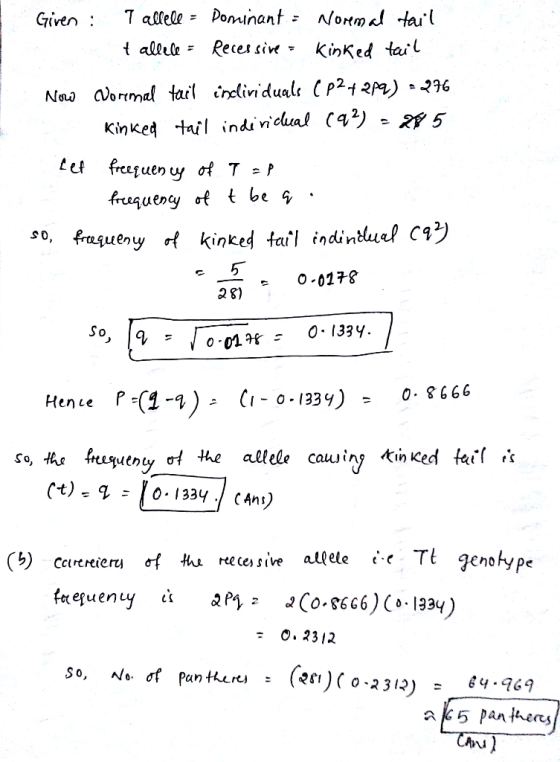 Given : T allele = Dominant = Normal tail
t allele = Recessive = Kinked tail
Now Normal tail individuals (p²+2pq) = 276
Kinked tail individual (q²) = 5
Let freequency of T = P
frequency of t be q .
so, frequeny of kinked tail individual (q²)
= 5/281 = 0.0178
So, q = √0.0178 = 0.1334.
Hence P = (1-q) = (1-0.1334) = 0.8666
so, the freequency of the allele causing kinked tail is
(t) = q = 0.1334. (Ans)
(b) of the recessive allele i.e Tt genotype
frequency is 2pq = 2(0.8666)(0.1334)
= 0.2312
So, No. of pantheres = (281)(0.2312) = 64.969
≈ 65 pantheres
(Ans)